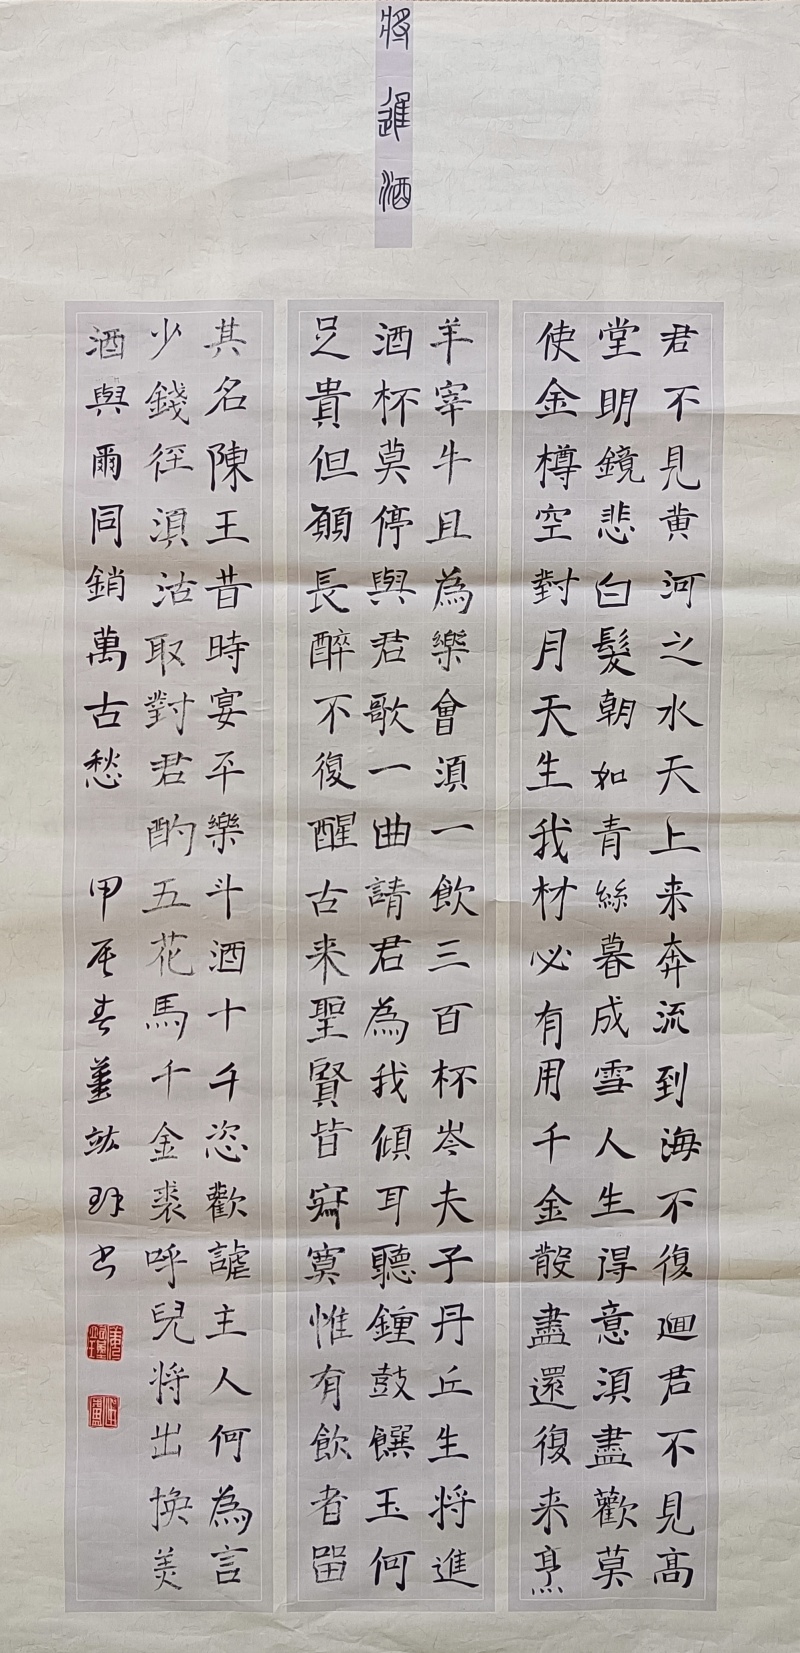 將進酒
君不見黄河之水天上来奔流到海不復迴君不見高
堂明鏡悲白髮朝如青絲暮成雪人生得意須盡歡莫
使金樽空對月天生我材必有用千金散盡還復来烹
羊宰牛且為樂會須一飲三百杯岑夫子丹丘生將進
酒杯莫停與君歌一曲請君為我傾耳聽鐘鼓饌玉何
足貴但願長醉不復醒古来聖賢皆寂寞惟有飲者留
其名陳王昔時宴平樂斗酒十千恣歡謔主人何為言
少錢徑須沽取對君酌五花馬千金裘呼兒將出換美
酒與爾同銷萬古愁 甲辰春 書